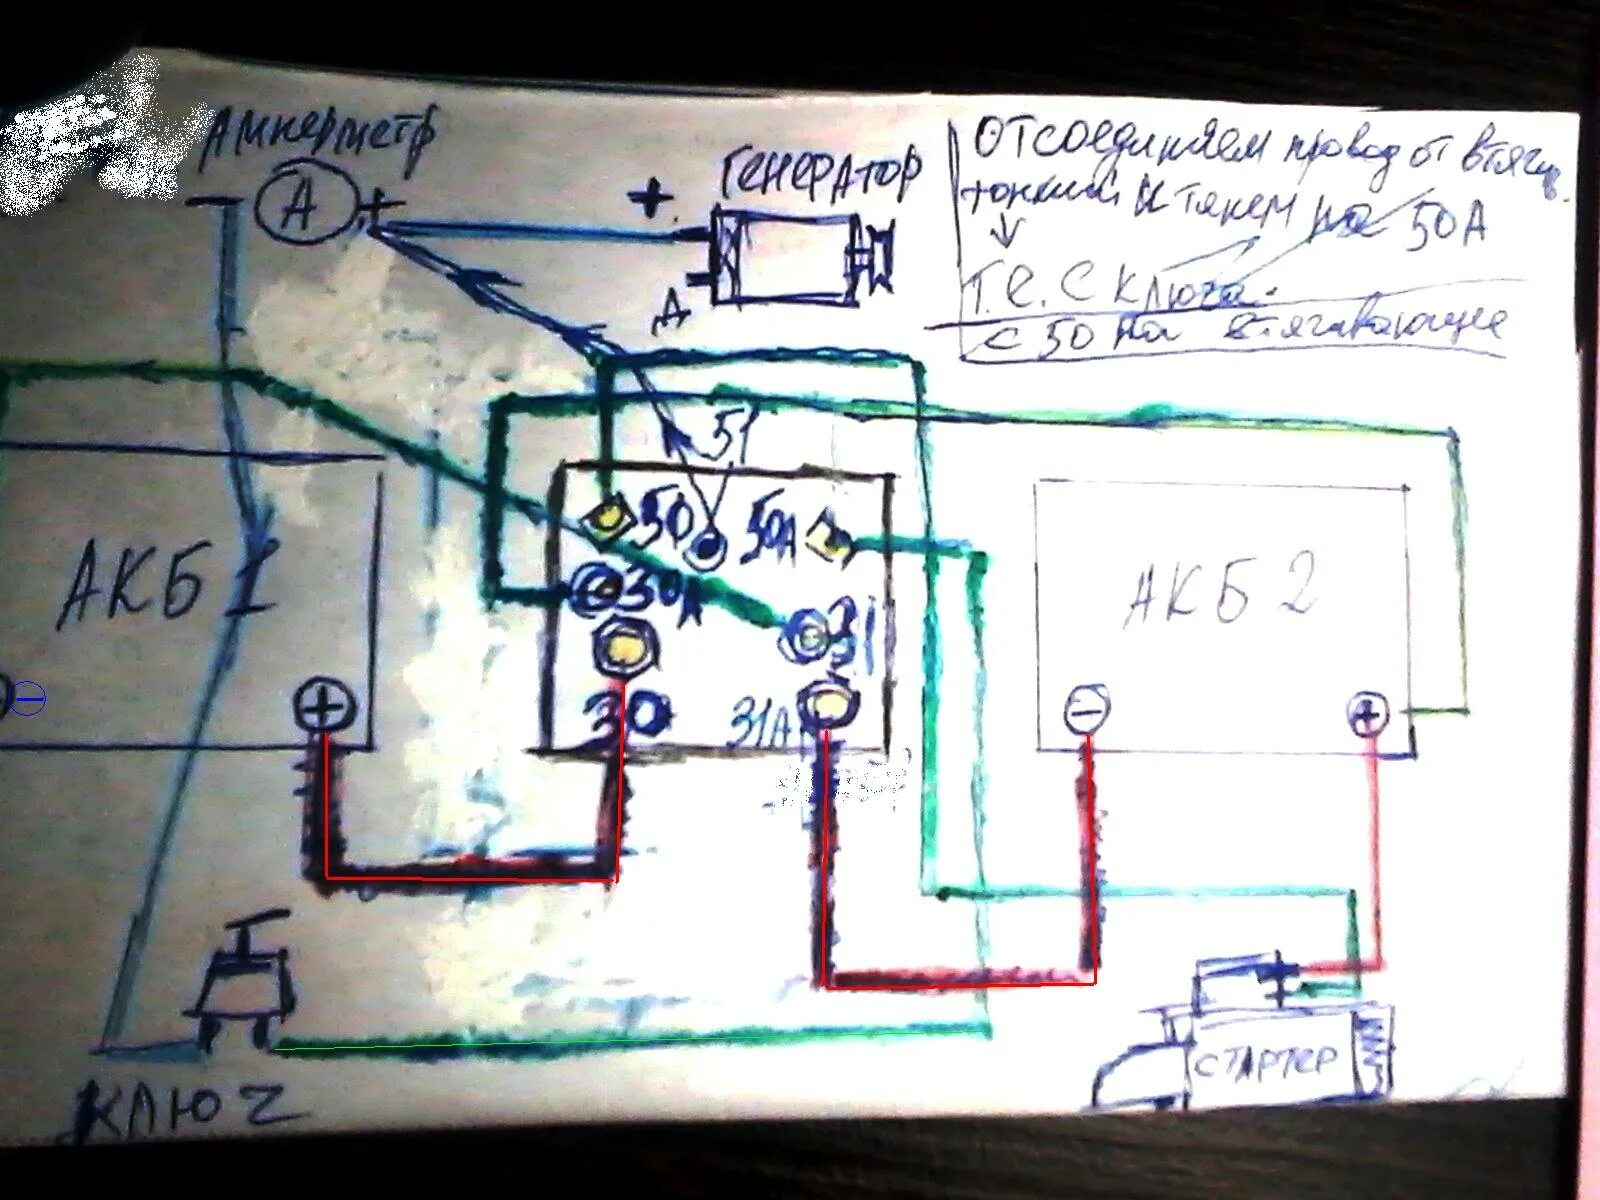 Амперметр
А
+
Генератор
+
Д
Отсоединяем провод от втягив.
тонкий и тянем на 50А
Т.е. с ключа.
с 50 на втягивающие
51
50
50А
30А
31
30
31А
АКБ 1
+
−
АКБ 2
−
+
СТАРТЕР
КЛЮЧ